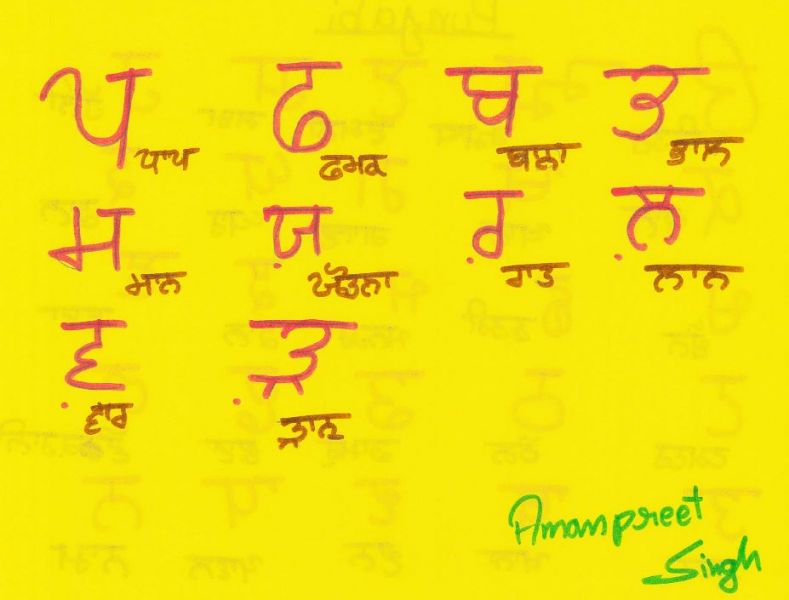 ਪ ਫ ਬ ਭ
ਪਾਪ ਫਮਕ ਬਲਾ ਭਾਲ
ਮ ਯ਼ ਰ਼ ਲ਼
ਮਾਲ ਰਾਤ ਲਾਲ
ਵ਼ ੜ਼
ਵਾਰ
Amanpreet
Singh